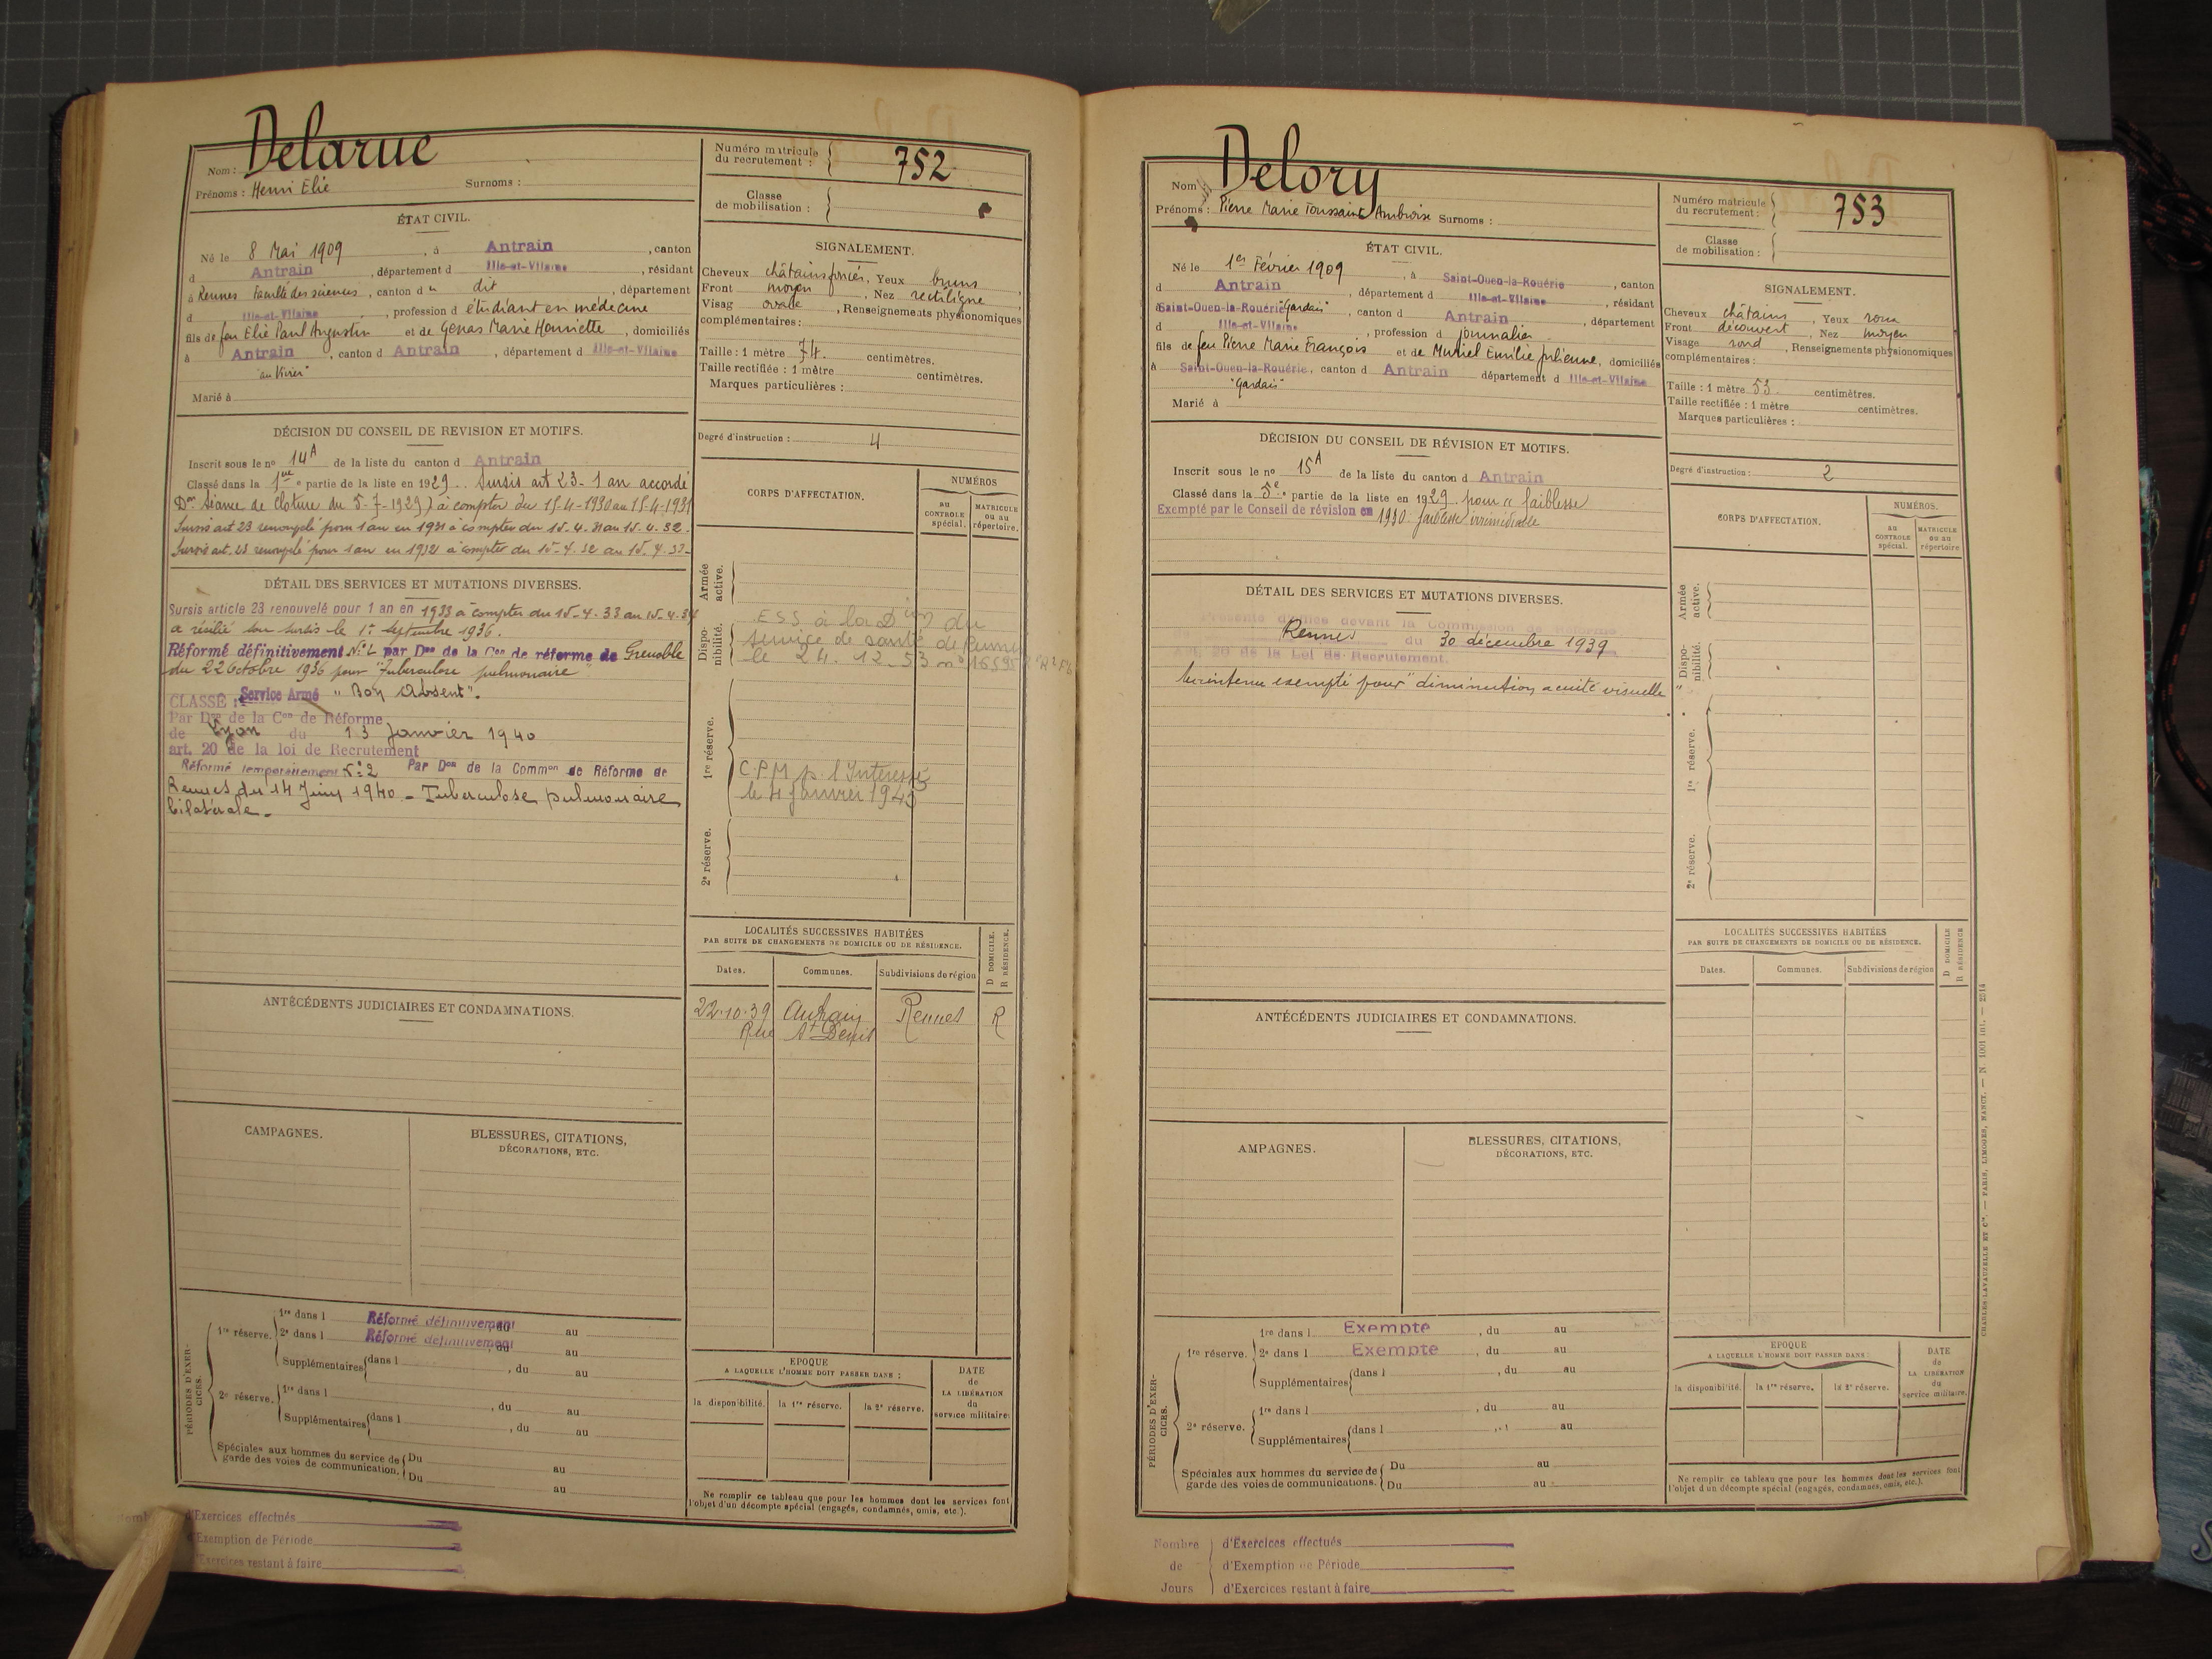 Nom : Delarue
Prénoms : Henri Elie Surnoms :
Numéro matricule du recrutement : 752
Classe de mobilisation :
ÉTAT CIVIL.
Né le 8 Mai 1909, à Antrain, canton
d Antrain, département d Ille-et-Vilaine, résidant
à Rennes Faculté des sciences, canton d u dit, département
d Ille-et-Vilaine, profession d étudiant en médecine
fils de feu Elie Paul Augustin et de Genas Marie Henriette, domiciliés
à Antrain, canton d Antrain, département d Ille-et-Vilaine
"au Vivier"
Marié à
SIGNALEMENT.
Cheveux châtains foncés, Yeux bruns,
Front moyen, Nez rectiligne
Visag ovale, Renseignements physionomiques
complémentaires :
Taille : 1 mètre 74. centimètres.
Taille rectifiée : 1 mètre centimètres.
Marques particulières :
Degré d'instruction : 4
DÉCISION DU CONSEIL DE REVISION ET MOTIFS.
Inscrit sous le n° 14A de la liste du canton d Antrain
Classé dans la 1ère partie de la liste en 1929. Sursis art 23 - 1 an accordé
Don Séance de cloture du 5-7-1929) à compter du 15-4-1930 au 15-4-1931
Sursis art 23 renouvelé pour 1 an en 1931 à compter du 15.4.31 au 15.4.32.
Sursis art. 23 renouvelé pour 1 an en 1932 à compter du 15-4.32 au 15.4.33-
DÉTAIL DES SERVICES ET MUTATIONS DIVERSES.
Sursis article 23 renouvelé pour 1 an en 1933 à compter du 15-4.33 au 15.4.34
a résilié son sursis le 1er Septembre 1936.
Réformé définitivement N°2 par Don de la Con de réforme de Grenoble
du 22 Octobre 1936 pour "Tuberculose pulmonaire
CLASSÉ : Service Armé "Bon Absent".
Par Don de la Con de Réforme
de Lyon du 13 Janvier 1940
art. 20 de la loi de Recrutement
Réformé temporairement N°2 Par Don de la Common de Réforme de
Rennes du 14 Juin 1940 - Tuberculose pulmonaire
bilatérale.
CORPS D'AFFECTATION.
NUMÉROS
au CONTROLE spécial.
MATRICULE ou au répertoire.
Armée active.
Disponibilité.
ESS à la Dion du
service de santé de
le 24.12.53 n° 16595
1re réserve.
C.P.M p. l'Intéressé
le 4 Janvier 1943
2e réserve.
LOCALITÉS SUCCESSIVES HABITÉES
PAR SUITE DE CHANGEMENTS DE DOMICILE OU DE RÉSIDENCE.
D DOMICILE. R RÉSIDENCE.
Dates. Communes. Subdivisions de région
22.10.39 Antrain Rennes R
Rue St Denis
ANTÉCÉDENTS JUDICIAIRES ET CONDAMNATIONS.
CAMPAGNES.
BLESSURES, CITATIONS,
DÉCORATIONS, ETC.
PÉRIODES D'EXERCICES.
1re réserve. 1re dans l Réformé définitivement du au
2e dans l Réformé définitivement, du au
Supplémentaires dans l, du au
2e réserve. 1re dans l, du au
Supplémentaires dans l, du au
Spéciales aux hommes du service de garde des voies de communication. Du au
Du au
EPOQUE
A LAQUELLE L'HOMME DOIT PASSER DANS :
la disponibilité. la 1re réserve. la 2e réserve.
DATE de LA LIBÉRATION du service militaire.
Ne remplir ce tableau que pour les hommes dont les services font
l'objet d'un décompte spécial (engagés, condamnés, omis, etc.).
d'Exercices effectués
d'Exemption de Période
d'Exercices restant à faire
Nom : Delory
Prénoms : Pierre Marie Toussaint Ambroise Surnoms :
Numéro matricule du recrutement : 753
Classe de mobilisation :
ÉTAT CIVIL.
Né le 1er Février 1909, à Saint-Ouen-la-Rouërie, canton
d Antrain, département d Ille-et-Vilaine, résidant
à Saint-Ouen-la-Rouërie "Gardais", canton d Antrain, département
d Ille-et-Vilaine, profession d journalier
fils de feu Pierre Marie François et de Mutiel Emilie Julienne, domiciliés
à Saint-Ouen-la-Rouërie, canton d Antrain département d Ille-et-Vilaine
"Gardais"
Marié à
SIGNALEMENT.
Cheveux châtains, Yeux roux
Front découvert, Nez moyen
Visage rond, Renseignements physionomiques
complémentaires :
Taille : 1 mètre 53 centimètres.
Taille rectifiée : 1 mètre centimètres.
Marques particulières :
Degré d'instruction : 2
DÉCISION DU CONSEIL DE RÉVISION ET MOTIFS.
Inscrit sous le n° 15A de la liste du canton d Antrain
Classé dans la 5e partie de la liste en 1929 pour "faiblesse
Exempté par le Conseil de révision en 1930: faiblesse irrémédiable
DÉTAIL DES SERVICES ET MUTATIONS DIVERSES.
devant la Commission de Réforme
Rennes du 30 décembre 1939
Art. 20 de la Loi de Recrutement.
Maintenu exempté pour "diminution acuité visuelle"
CORPS D'AFFECTATION.
NUMÉROS.
au CONTROLE spécial.
MATRICULE ou au répertoire
Armée active.
Disponibilité.
1re réserve.
2e réserve.
LOCALITÉS SUCCESSIVES HABITÉES
PAR SUITE DE CHANGEMENTS DE DOMICILE OU DE RÉSIDENCE.
D DOMICILE R RÉSIDENCE
Dates. Communes. Subdivisions de région
ANTÉCÉDENTS JUDICIAIRES ET CONDAMNATIONS.
AMPAGNES.
BLESSURES, CITATIONS,
DÉCORATIONS, ETC.
PÉRIODES D'EXERCICES.
1re réserve. 1re dans l Exempte, du au
2e dans l Exempte, du au
Supplémentaires dans l, du au
2e réserve. 1re dans l, du au
Supplémentaires dans l au
Spéciales aux hommes du service de garde des voies de communications. Du au
Du au
EPOQUE
A LAQUELLE L'HOMME DOIT PASSER DANS :
la disponibilité. la 1re réserve. la 2e réserve.
DATE de LA LIBÉRATION du service militaire.
Ne remplir ce tableau que pour les hommes dont les services font
l'objet d'un décompte spécial (engagés, condamnés, omis, etc.).
CHARLES-LAVAUZELLE ET Cie. — PARIS, LIMOGES, NANCY. — N. 1001 int. — 2314
Nombre de Jours
d'Exercices effectués
d'Exemption de Période
d'Exercices restant à faire